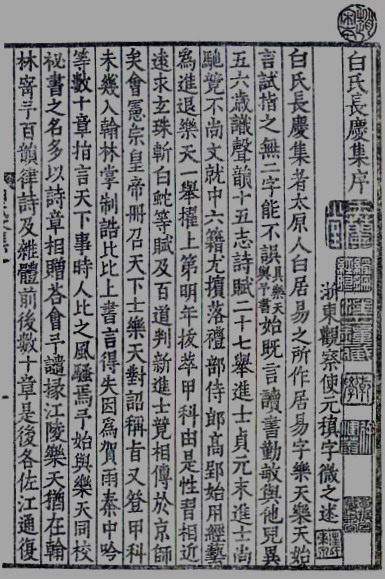 白氏長慶集序
浙東觀察使元稹字微之述
白氏長慶集者太原人白居易之所作居易字樂天樂天始
言試指之無二字能不誤具樂天與予書始既言讀書勤敏與他兒異
五六歲識聲韻十五志詩賦二十七舉進士貞元末進士尚
馳競不尚文就中六籍尤擯落禮部侍郎高郢始用經藝
為進退樂天一舉擢上第明年拔萃甲科由是性習相近
遠求玄珠斬白蛇等賦及百道判新進士競相傳於京師
矣會憲宗皇帝冊召天下士樂天對詔稱旨又登甲科
未幾入翰林掌制誥比比上書言得失因為賀雨秦中吟
等數十章指言天下事時人比之風騷焉予始與樂天同校
祕書之名多以詩章相贈荅會予譴掾江陵樂天猶在翰
林寄予百韻律詩及雜體前後數十章是後各佐江通復